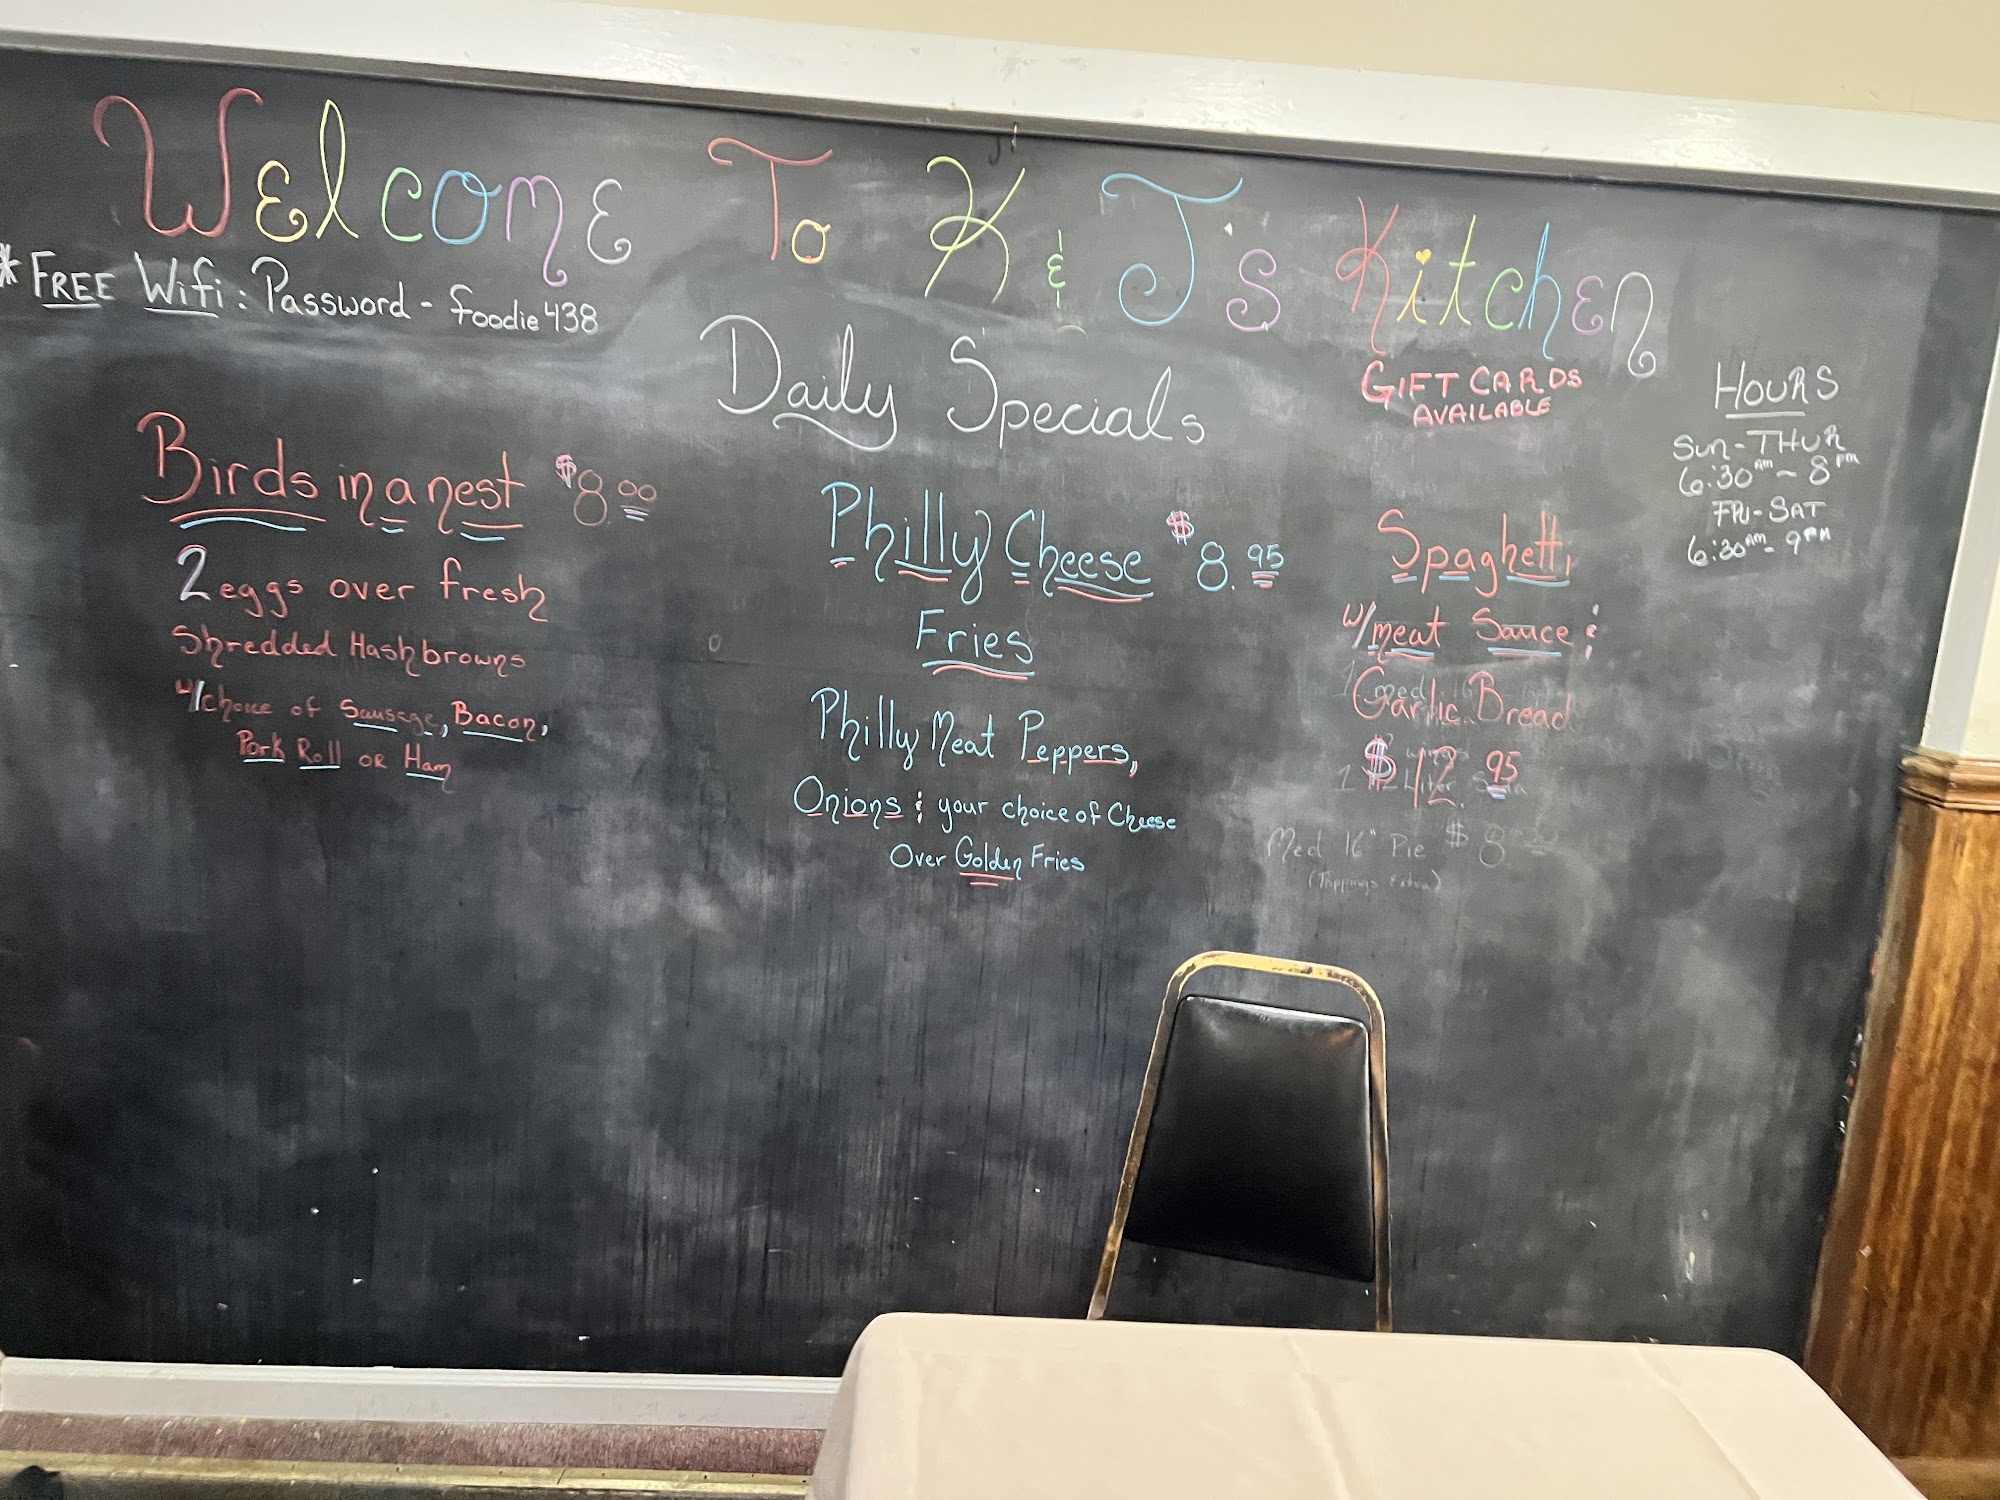 Welcome To K & J's Kitchen
* FREE Wifi: Password - foodie438
Daily Specials
GIFT CARDS
AVAILABLE
HOURS
Sun-THUR
6:30am - 8pm
FRI-SAT
6:30am - 9pm
Birds in a nest $8.00
2 eggs over fresh
Shredded Hashbrowns
w/choice of Sausage, Bacon,
Pork Roll or Ham
Philly Cheese $8.95
Fries
Philly Meat Peppers,
Onions & your choice of Cheese
Over Golden Fries
Spaghetti
w/meat Sauce &
Garlic Bread
$12.95
Med 16" Pie $8
(Toppings Extra)